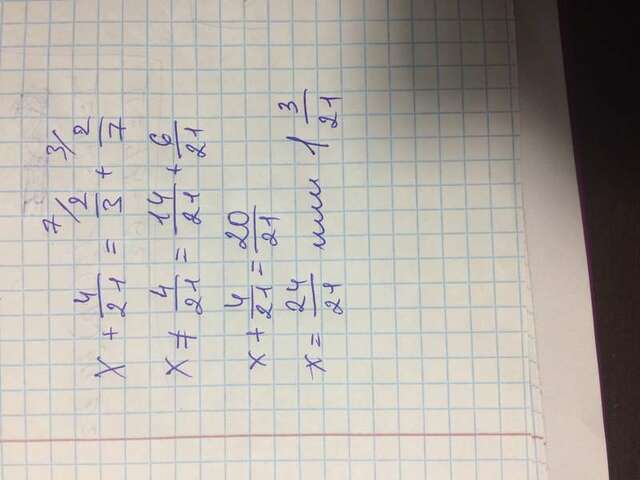 x + 4/21 = 7/ 2/3 + 3/ 2/7
x ≠ 4/21 = 14/21 + 6/21
x + 4/21 = 20/21
x = 24/21 или 1 3/21